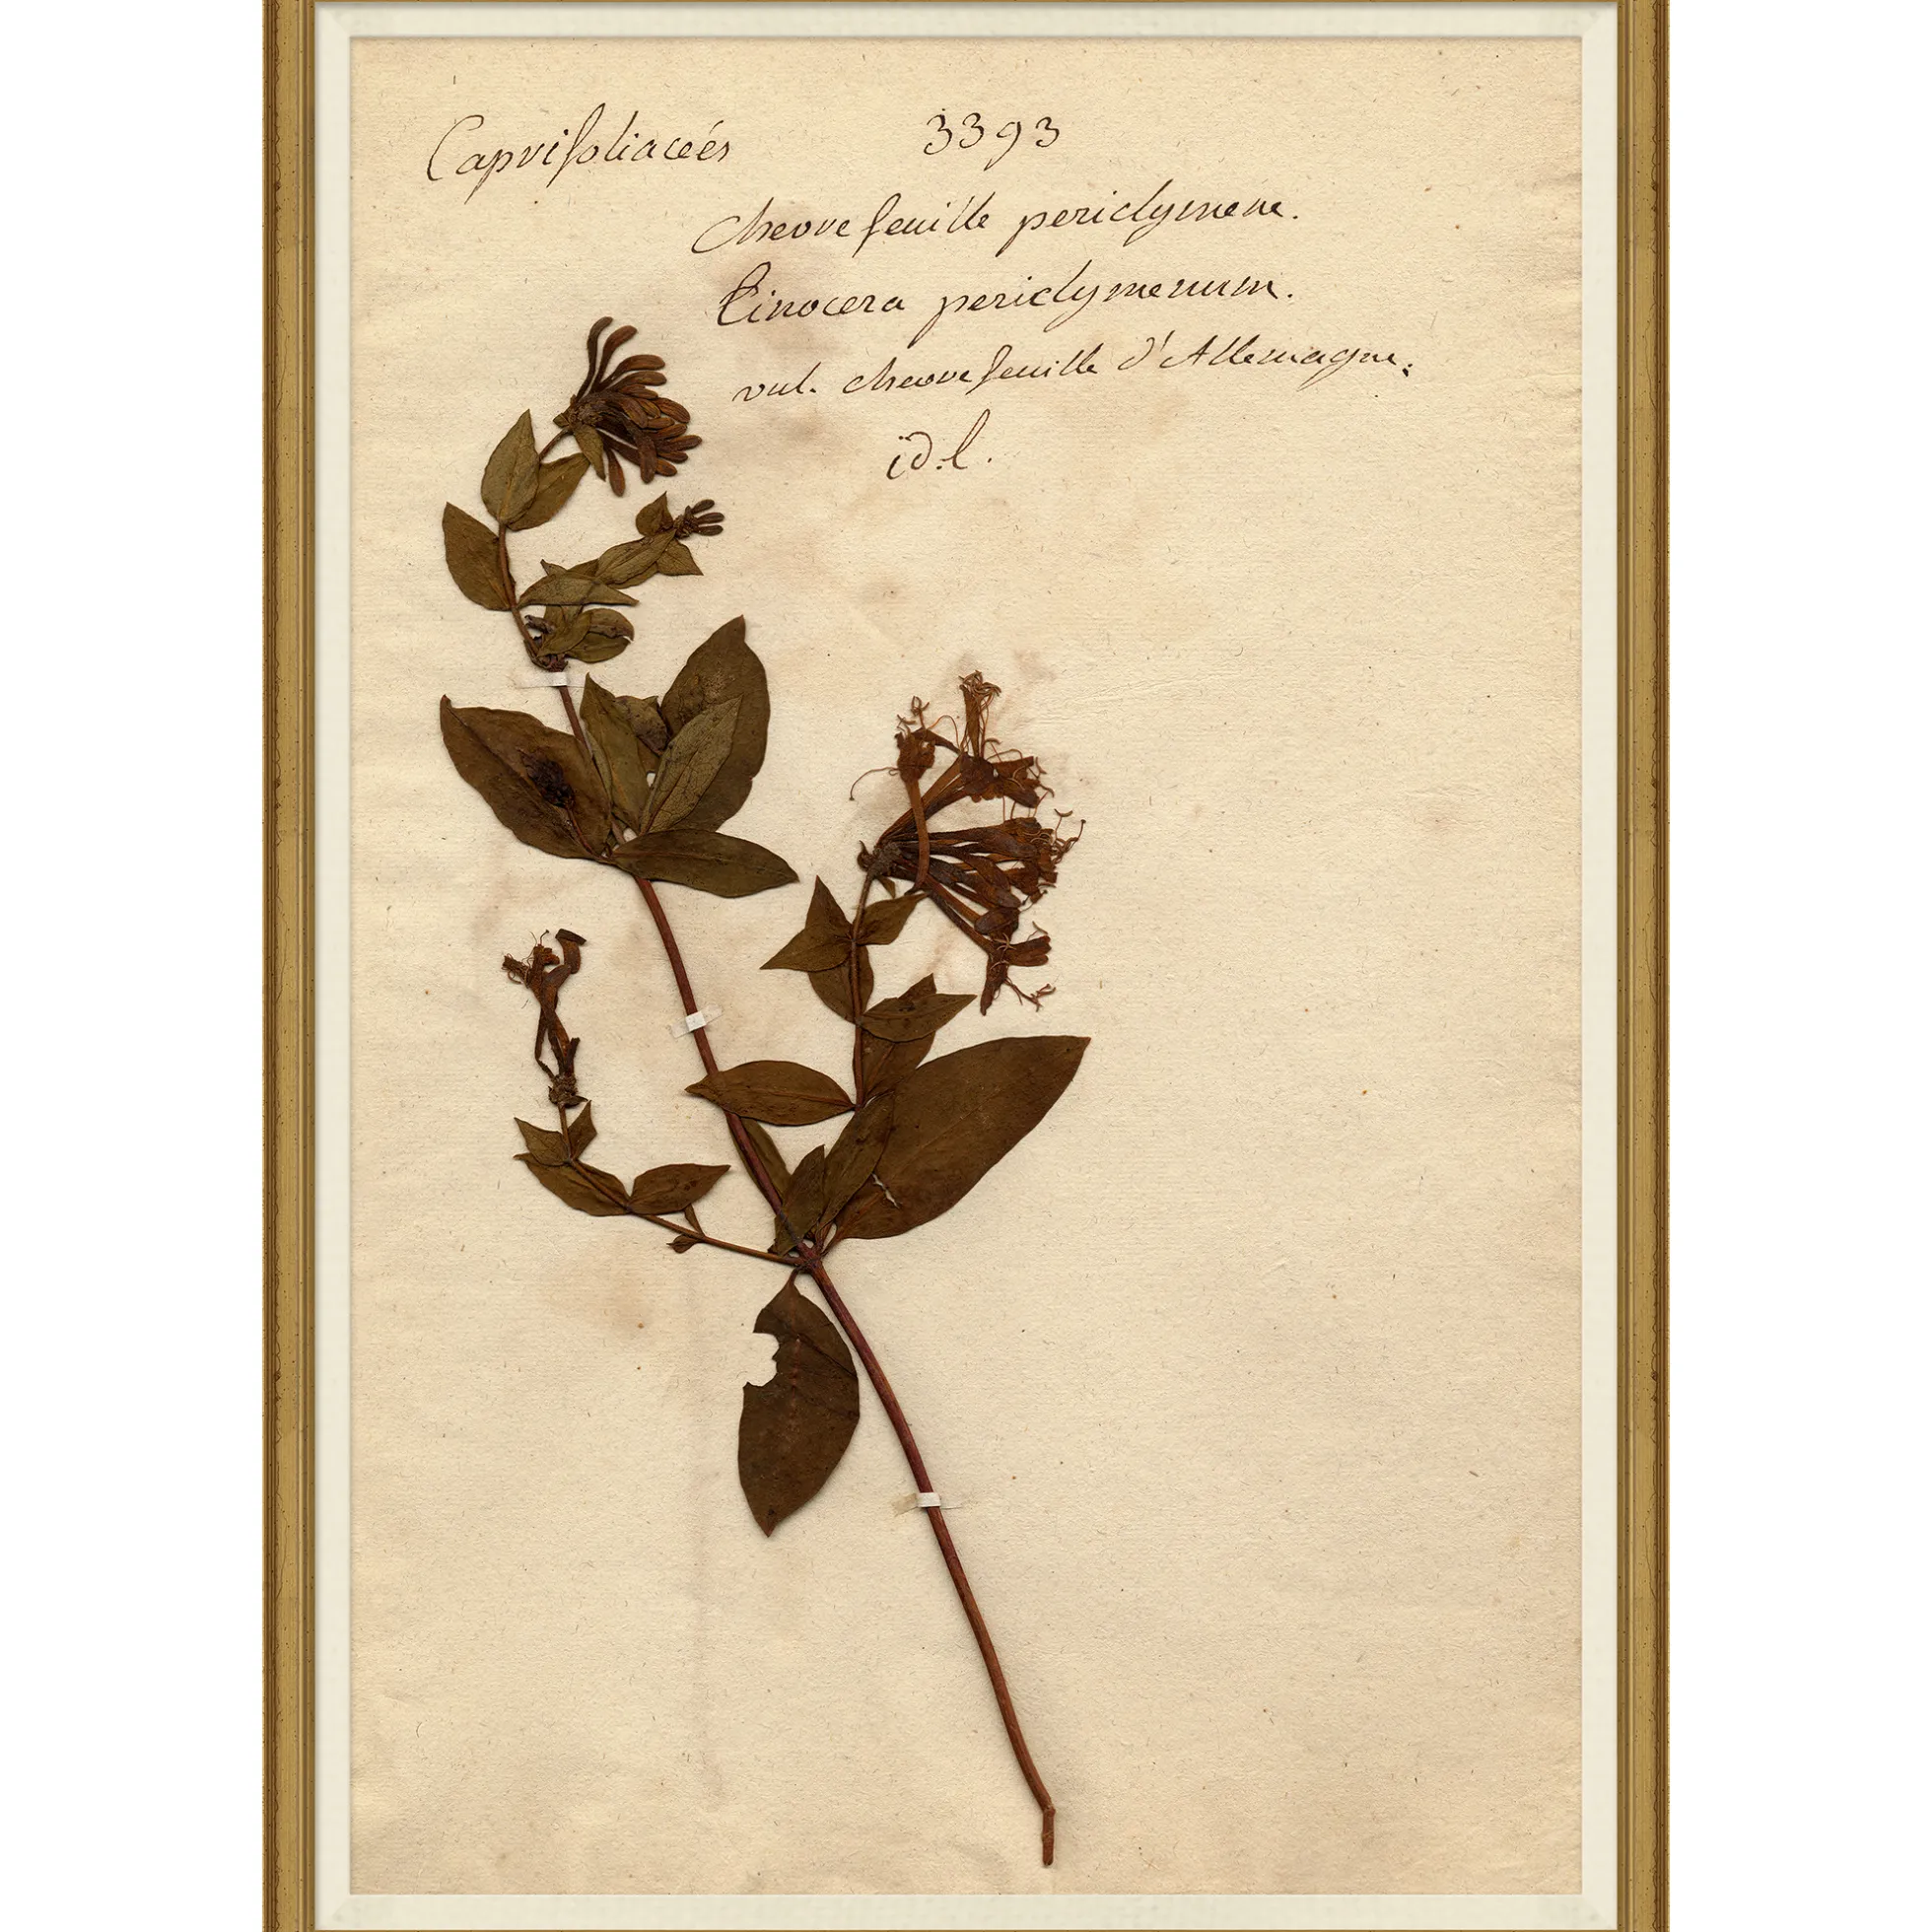 Caprifoliaceés 3393
chevrefeuille periclymene.
Linocera periclymenum.
vul. chevrefeuille d'Allemagne.
id.l.